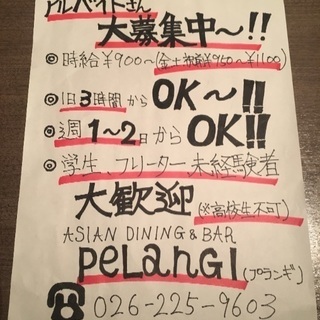 アルバイトさん
大募集中～!!
◎時給¥900～(金土祝前¥950～¥1100)
◎1日3時間からOK～!!
◎週1～2日からOK!!
◎学生、フリーター未経験者
大歓迎(※高校生不可)
ASIAN DINING & BAR
PeLaNGI(プランギ)
☎026-225-9603